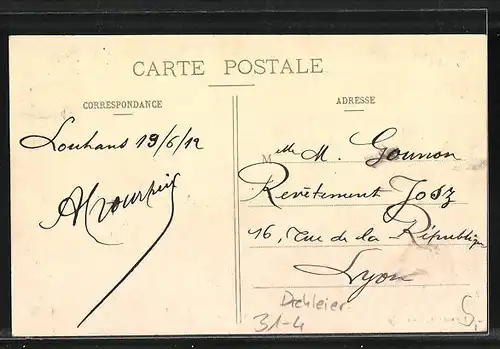 CARTE POSTALE
CORRESPONDANCE
ADRESSE
Louhans 19/6/12
Melle M. Gounon
Revêtement Josz
16, rue de la République
Lyon
31-4
5,-